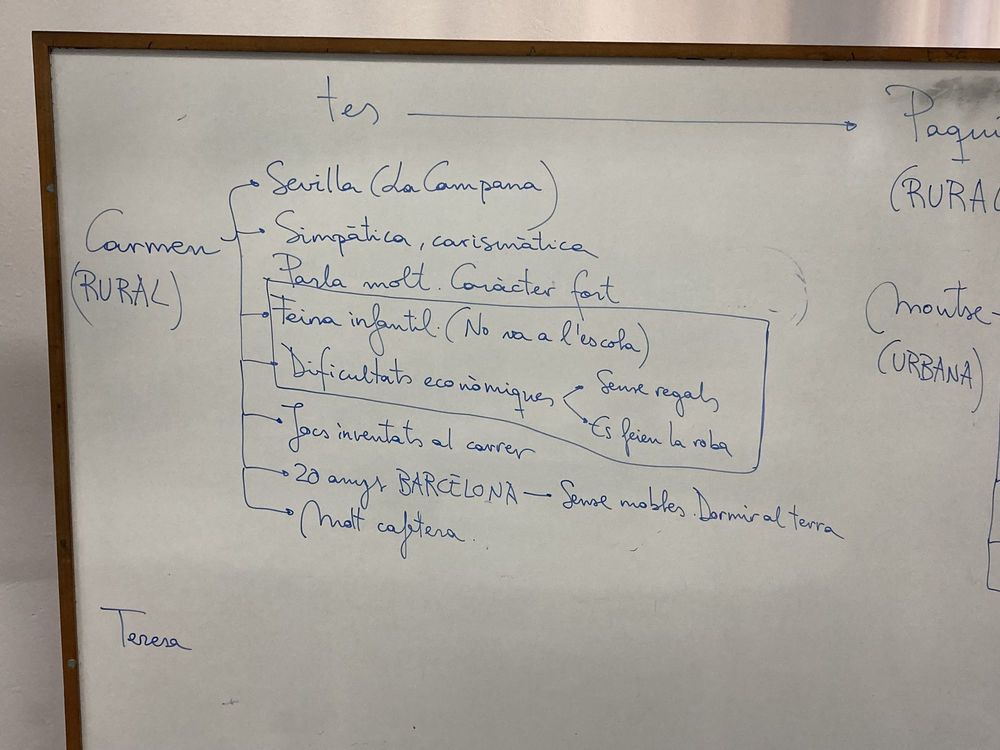 tes → Paqui
(RURAL
Carmen
(RURAL)
Sevilla (La Campana)
Simpàtica, carismàtica
Parla molt. Caràcter fort
Feina infantil. (No va a l'escola)
Dificultats econòmiques
Sense regals
Es feien la roba
Jocs inventats al carrer
20 anys BARCELONA — Sense mobles. Dormir al terra
Molt cafetera.
(Montse -
(URBANA)
Teresa